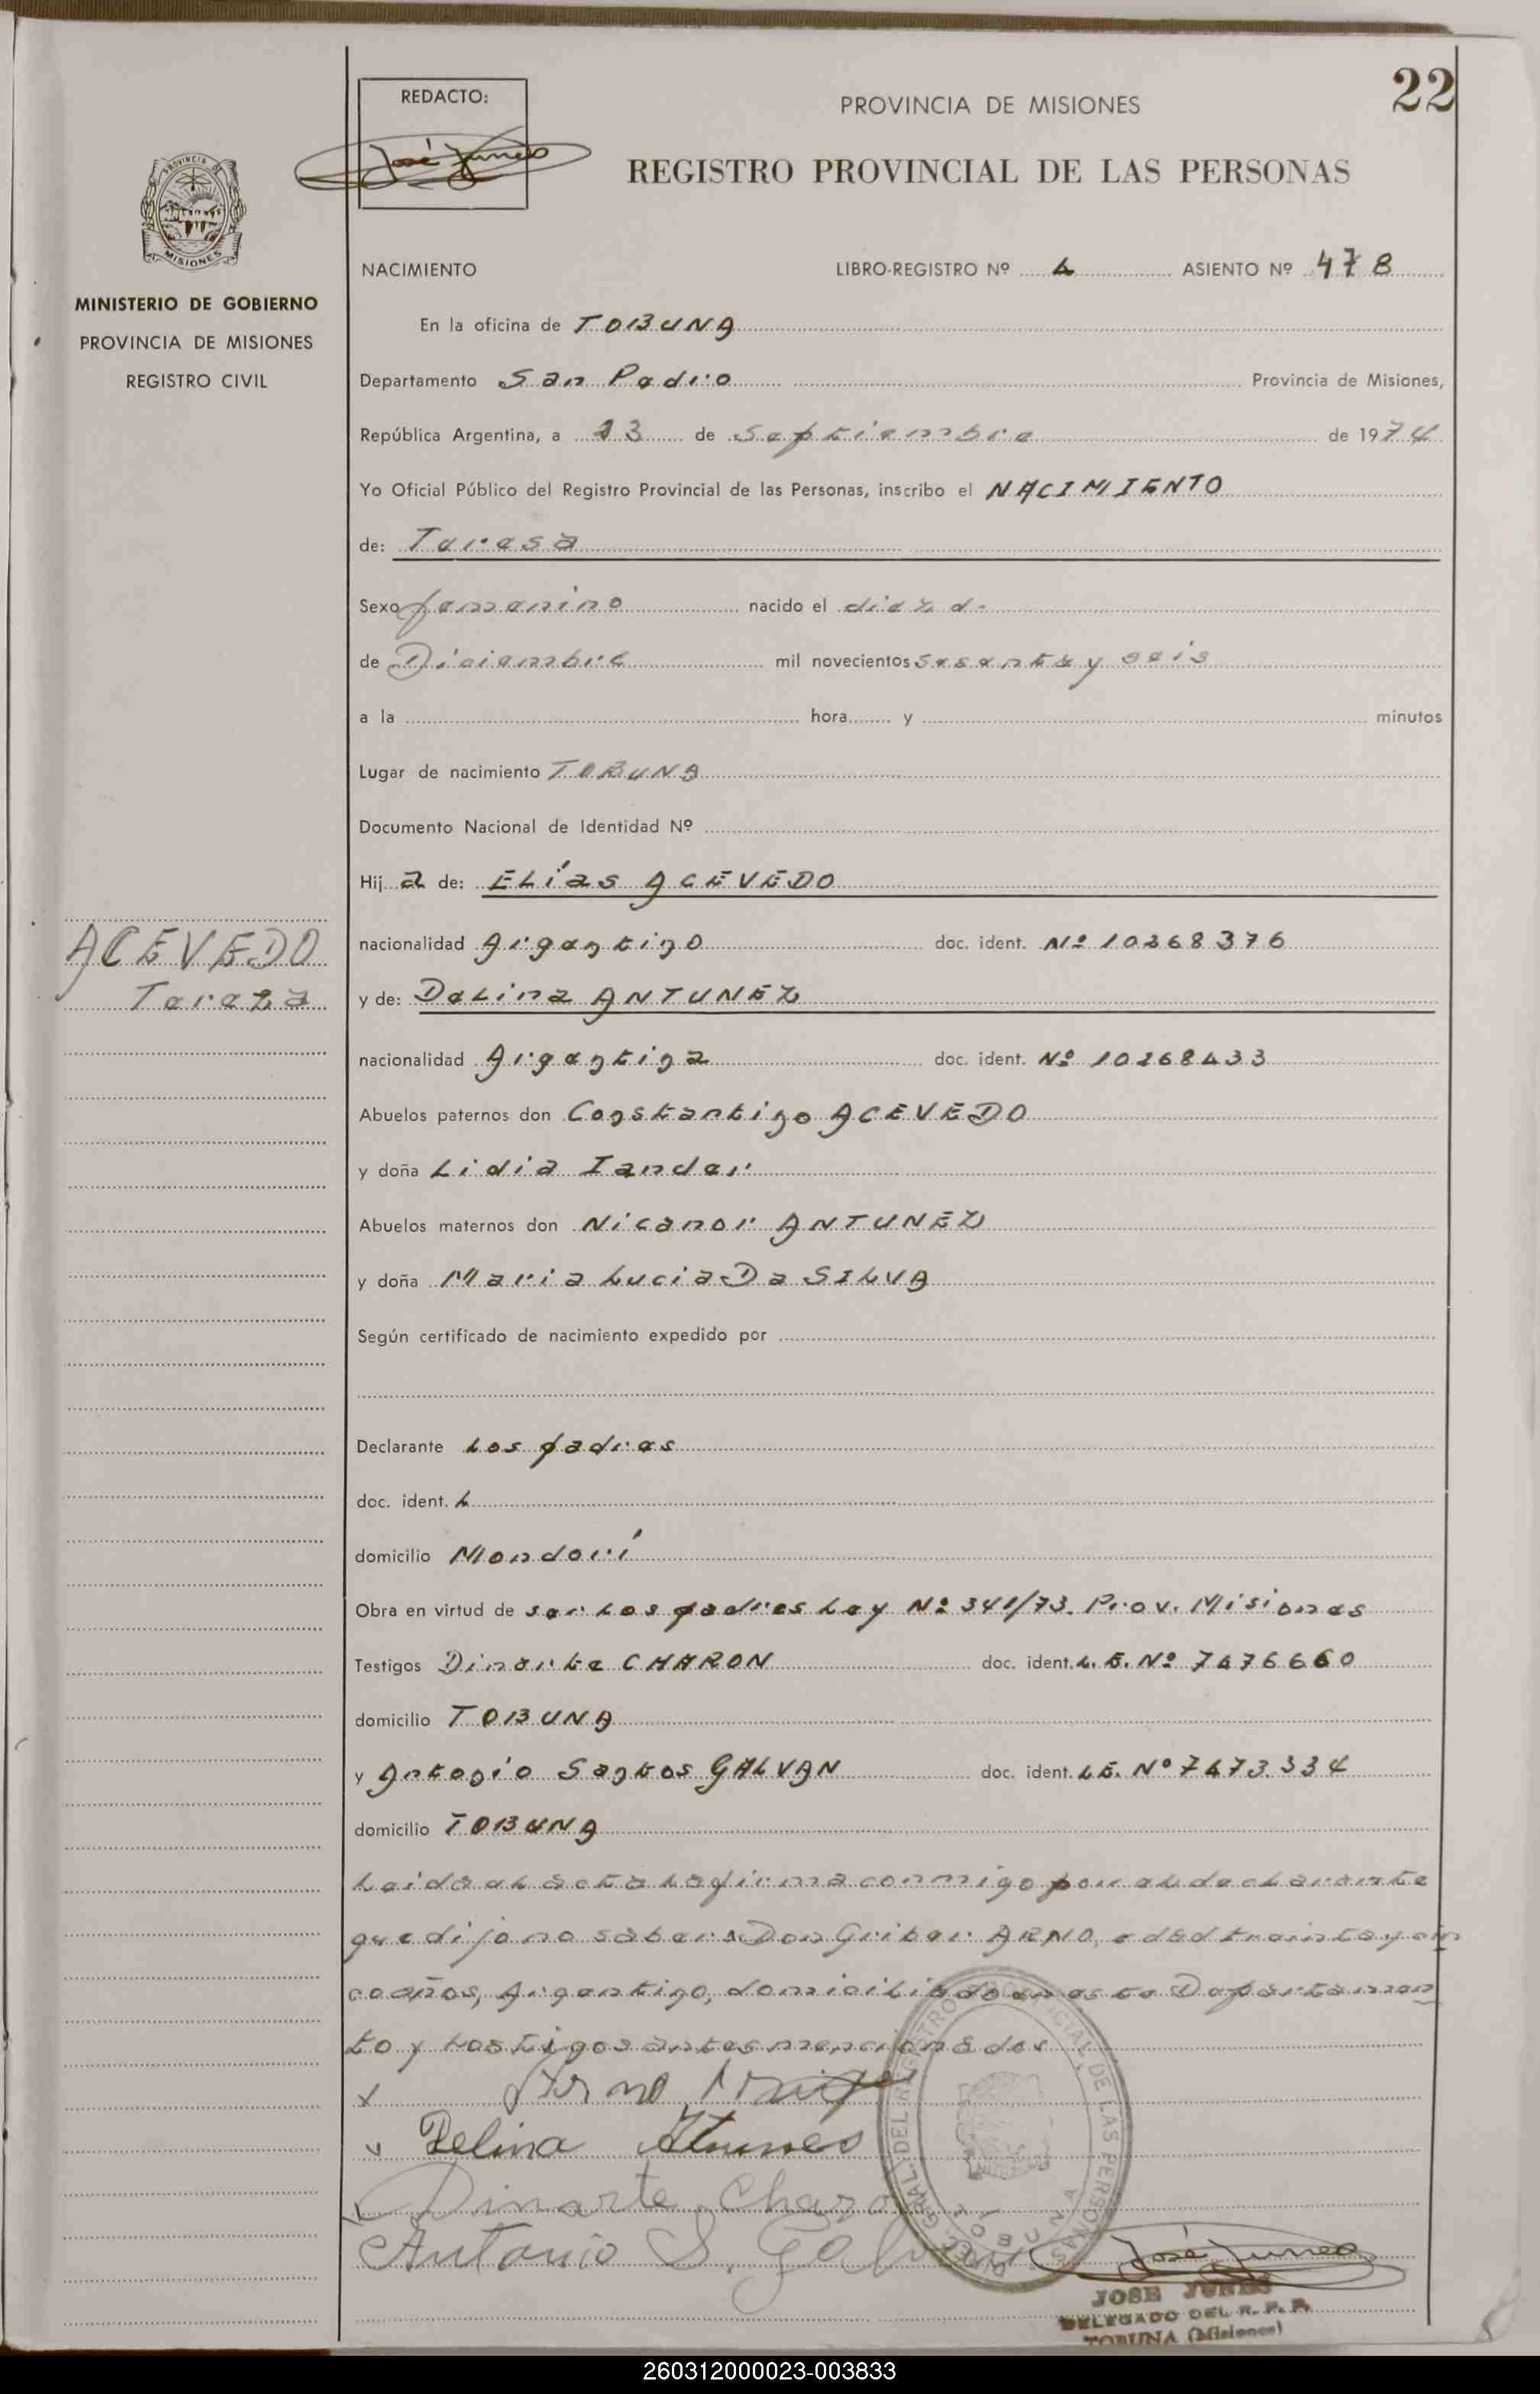 22
REDACTO:
PROVINCIA DE MISIONES
REGISTRO PROVINCIAL DE LAS PERSONAS
PROVINCIA
MISIONES
MINISTERIO DE GOBIERNO
PROVINCIA DE MISIONES
REGISTRO CIVIL
NACIMIENTO LIBRO-REGISTRO Nº 4 ASIENTO Nº 478
En la oficina de TOBUNA
Departamento San Pedro Provincia de Misiones,
República Argentina, a 13 de Septiembre de 1974
Yo Oficial Público del Registro Provincial de las Personas, inscribo el NACIMIENTO
de: Teresa
Sexo femenino nacido el diez d-
de Diciembre mil novecientos sesenta y seis
a la hora y minutos
Lugar de nacimiento TOBUNA
Documento Nacional de Identidad Nº
Hij a de: ELías ACEVEDO
ACEVEDO
Tereza
nacionalidad Argentino doc. ident. Nº 10268376
y de: DeLina ANTUNEZ
nacionalidad Argentina doc. ident. Nº 10268433
Abuelos paternos don Constantino ACEVEDO
y doña Lidia Iander
Abuelos maternos don Nicanor ANTUNEZ
y doña Maria Lucia Da SILVA
Según certificado de nacimiento expedido por
Declarante Los padres
doc. ident.
domicilio Mondorí
Obra en virtud de ser Los padres Ley Nº 341/73. Prov. Misiones
Testigos Dinarte CHARON doc. ident. L.E. Nº 7476660
domicilio TOBUNA
y Antonio Santos GALVAN doc. ident. LE. Nº 7473.334
domicilio TOBUNA
Leida eL acta La firma conmigo por eL decLarante
que dijo no saber: Don Griber ARNO, edad treinta y cin
co años, Argentino, domiciLiado en este Departamen
to y testigos antes mencionados
x Arno
Delina Atunes
Dinarte Charon
Antonio S. Galvan
DIREC. GRAL. DEL REGISTRO PROVINCIAL DE LAS PERSONAS
TOBUNA
JOSE JUNES
DELEGADO DEL R. P. P.
TOBUNA (Misiones)
260312000023-003833